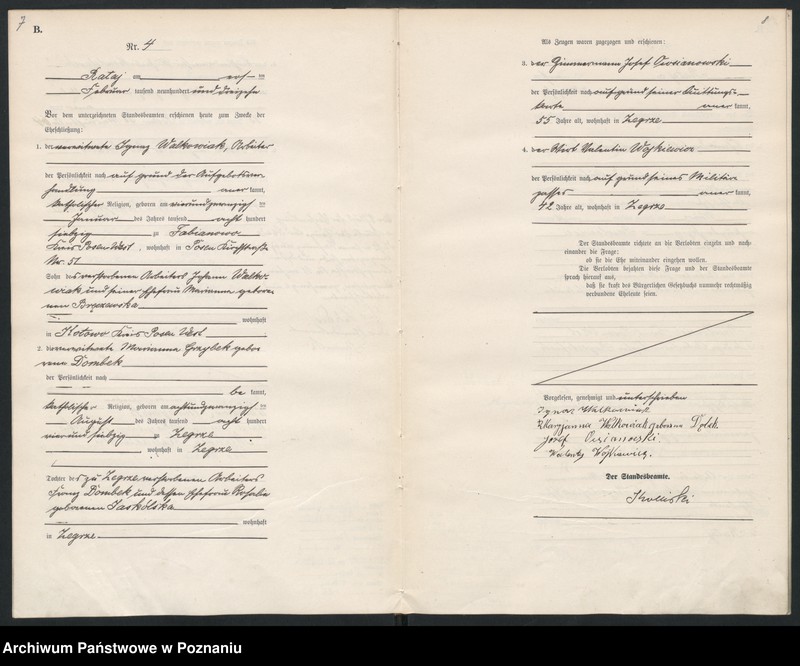 7
B.
Nr. 4
Rataj am ers ten
Februar tausend neunhundert und dreizehn
Vor dem unterzeichneten Standesbeamten erschienen heute zum Zwecke der
Eheschließung:
1. der verwitwete Ignaz Walkowiak, Arbeiter
der Persönlichkeit nach auf grund der Aufgebotsver-
handlung aner kannt,
katholischer Religion, geboren am vierundzwanzigsten
Januar des Jahres tausend acht hundert
siebzig zu Fabianowo
Kreis Posen West, wohnhaft in Posen Kirchstraße
Nr. 51
Sohn des verstorbenen Arbeiters Johann Walko-
wiak und seiner Ehefrau Marianna gebore-
nen
wohnhaft
in Kotowo Kreis Posen West
2. die verwitwete Marianna Grzybek gebo-
rene Dombek
der Persönlichkeit nach
be kannt,
katholischer Religion, geboren am achtundzwanzigsten
August des Jahres tausend acht hundert
vierundsiebzig zu Zegrze
wohnhaft in Zegrze
Tochter des zu Zegrze verstorbenen Arbeiters
Franz Dombek und dessen Ehefrau Rosalie
geborenen Jaskólska
wohnhaft
in Zegrze
8
Als Zeugen waren zugezogen und erschienen:
3. der Zimmermann Josef
der Persönlichkeit nach auf grund seiner Quittungs-
karte aner kannt,
55 Jahre alt, wohnhaft in Zegrze
4. der Wirt Valentin Wojkiewicz
der Persönlichkeit nach auf grund seines Militär
passes aner kannt,
42 Jahre alt, wohnhaft in Zegrze
Der Standesbeamte richtete an die Verlobten einzeln und nach-
einander die Frage:
ob sie die Ehe miteinander eingehen wollen.
Die Verlobten bejahten diese Frage und der Standesbeamte
sprach hierauf aus,
daß sie kraft des Bürgerlichen Gesetzbuchs nunmehr rechtmäßig
verbundene Eheleute seien.
Vorgelesen, genehmigt und unterschrieben
Ignac Walkowiak
Maryanna Walkowiak geborene
Josef
Walenty Wojkiewicz.
Der Standesbeamte.
Archiwum Państwowe w Poznaniu